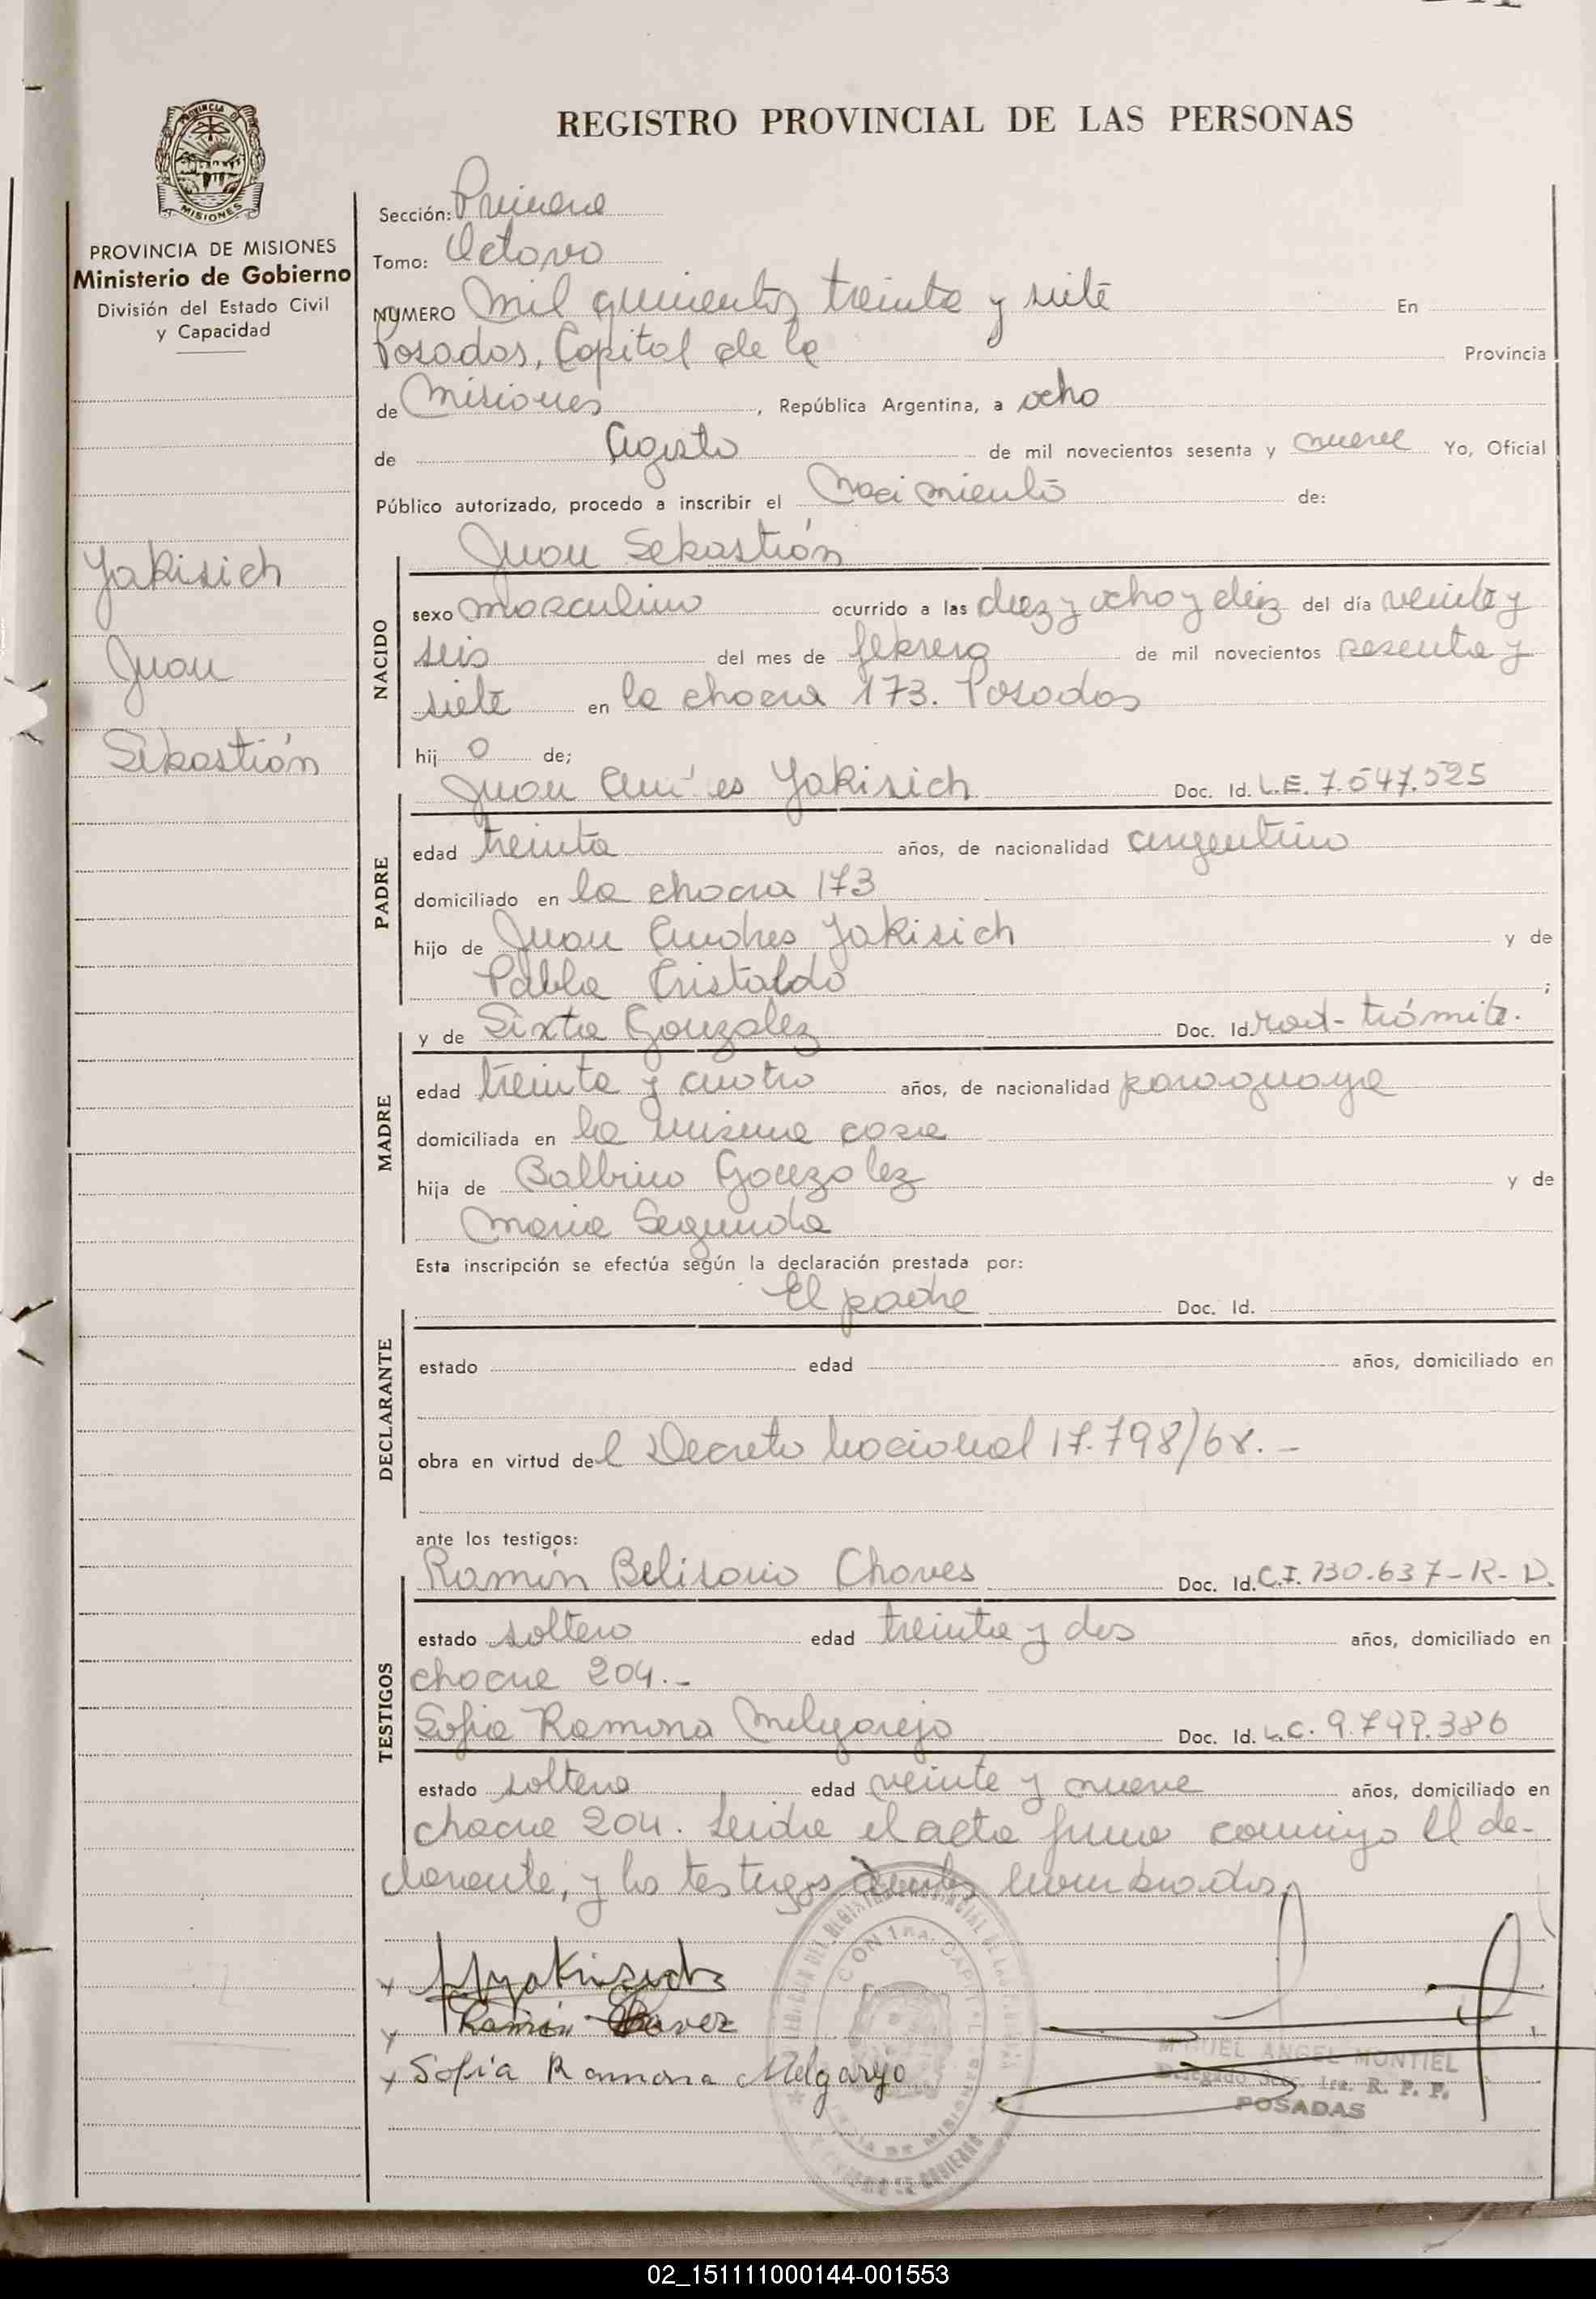 REGISTRO PROVINCIAL DE LAS PERSONAS
PROVINCIA
MISIONES
PROVINCIA DE MISIONES
Ministerio de Gobierno
División del Estado Civil
y Capacidad
Yakisich
Juan
Sebastián
Sección: Primera
Tomo: Octavo
NUMERO Mil quinientos treinta y siete En
Posadas, Capital de la Provincia
de Misiones, República Argentina, a ocho
de Agosto de mil novecientos sesenta y nueve Yo, Oficial
Público autorizado, procedo a inscribir el Nacimiento de:
Juan Sebastián
NACIDO
sexo masculino ocurrido a las diez y ocho y diez del día veinte y
seis del mes de febrero de mil novecientos sesenta y
siete en la chacra 173. Posadas
hij o de;
Juan Yakisich Doc. Id. L.E. 7.547.525
PADRE
edad treinta años, de nacionalidad argentino
domiciliado en la chacra 173
hijo de Juan Andres Yakisich y de
Pabla Cristaldo ;
y de Sixta Gonzalez Doc. Id. rad-trámite.
MADRE
edad treinta y cuatro años, de nacionalidad paraguaya
domiciliada en la misma casa
hija de Balbino Gonzalez y de
Maria Segunda
Esta inscripción se efectúa según la declaración prestada por:
El padre Doc. Id.
DECLARANTE
estado edad años, domiciliado en
obra en virtud de l Decreto Nacional 17.798/68.-
ante los testigos:
Ramón Belisario Chaves Doc. Id. C.I. 130.637-R-D.
TESTIGOS
estado soltero edad treinta y dos años, domiciliado en
chacra 204.-
Sofia Ramona Melgarejo Doc. Id. L.C. 9.799.386
estado soltera edad veinte y nueve años, domiciliado en
chacra 204. Leida el acta firma conmigo el de-
clarante, y los testigos antes nombrados.
x Yakisich
x Ramón Chavez
x Sofia Ramona Melgarejo
MIGUEL ANGEL MONTIEL
Delegado Secc. 1ra. R. P. P.
POSADAS
02_151111000144-001553